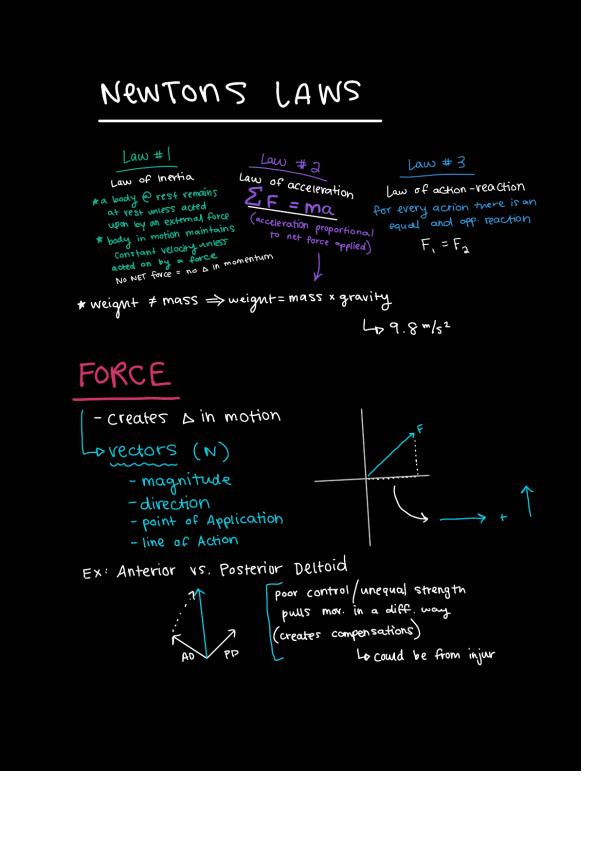 NEWTONS LAWS
Law #1
Law of Inertia
* a body @ rest remains
at rest unless acted
upon by an external force
* body in motion maintains
constant velocity unless
acted on by a force
NO NET force = no Δ in momentum
Law #2
Law of acceleration
ΣF = ma
(acceleration proportional
to net force applied)
Law #3
Law of action-reaction
for every action there is an
equal and opp. reaction
F₁ = F₂
* weight ≠ mass ⇒ weight = mass × gravity
↳ 9.8 m/s²
FORCE
- creates Δ in motion
↳ vectors (N)
- magnitude
- direction
- point of Application
- line of Action
F
+
Ex: Anterior vs. Posterior Deltoid
AD
PD
poor control/unequal strength
pulls mov. in a diff. way
(creates compensations)
↳ could be from injur